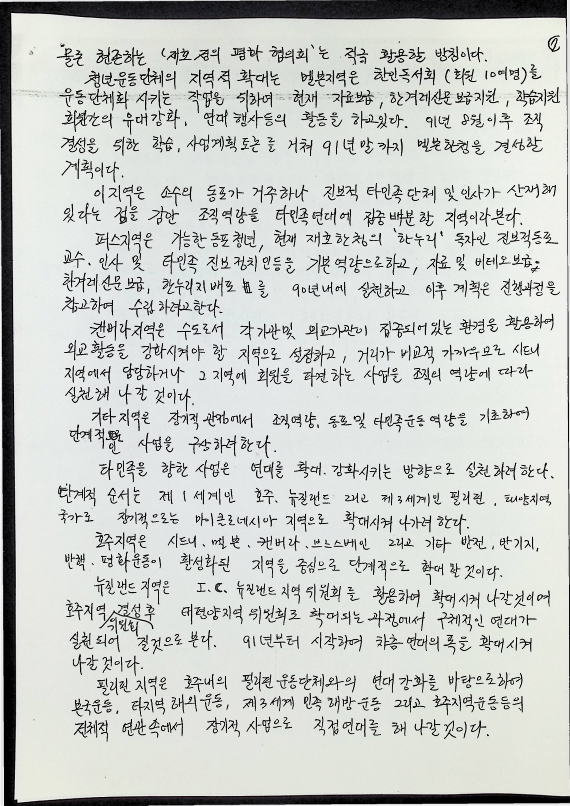 ②
물론 현존하는 '재호 정의 평화 협의회'는 적극 활용할 방침이다.
청년운동단체의 지역적 확대는 멜본지역은 한인독서회 (회원 10여명)를
운동단체화 시키는 작업을 위하여 현재 자료보급, 한겨레신문보급지원, 학습지원
회원간의 유대강화, 연대행사등의 활동을 하고있다. 91년 8월이후 조직
결성을 위한 학습, 사업계획토론를 거쳐 91년말까지 멜본한청을 결성할
계획이다.
이지역은 소수의 동포가 거주하나 진보적 타민족단체 및 인사가 산재해
있다는 점을 감안 조직역량을 타민족연대에 집중 배분할 지역이라본다.
퍼스지역은 가능한 동포청년, 현재 재호한청의 '한누리' 독자인 진보적동포
교수, 인사 및 타민족 진보정치인등을 기본역량으로하고, 자료및 비데오보급,
한겨레신문보급, 한누리지배포를 90년내에 실천하고 이후 계획은 진행과정을
참고하여 수립하려고한다.
캔버라지역은 수도로서 각기관및 외교가관이 집중되어있는 환경을 활용하여
외교활동을 강화시켜야 할 지역으로 설정하고, 거리가 비교적 가까우므로 시드니
지역에서 담당하거나 그지역에 회원을 파견하는 사업을 조직의 역량에 따라
실천해 나갈 것이다.
기타지역은 장기적 관점에서 조직역량, 동포및 타민족운동역량을 기초하여
단계적인 사업을 구상하려한다.
타민족을 향한 사업은 연대를 확대·강화시키는 방향으로 실천하려한다.
단계적 순서는 제1세계인 호주, 뉴질랜드 그리고 제3세계인 필리핀, 태양지역
국가로 장기적으로는 마이크로네시아 지역으로 확대시켜 나가려 한다.
호주지역은 시드니, 멜본, 캔버라, 브느스베인 그리고 기타 반전, 반기지,
반핵·평화운동이 활성화된 지역을 중심으로 단계적으로 확대할 것이다.
뉴질랜드 지역은 I.C. 뉴질랜드지역위원회를 활용하여 확대시켜 나갈것이며
호주지역 위원회 결성후 태평양지역 위원회로 확대되는 과정에서 구체적인 연대가
실현되어 질것으로 본다. 91년부터 시작하여 차츰 연대의 폭을 확대시켜
나갈 것이다.
필리핀 지역은 호주내의 필리핀 운동단체와의 연대강화를 바탕으로하여
본국운동, 타지역 해외운동, 제3세계 민족해방운동 그리고 호주지역운동등의
전체적 연관속에서 장기적 사업으로 직접연대를 해 나갈 것이다.